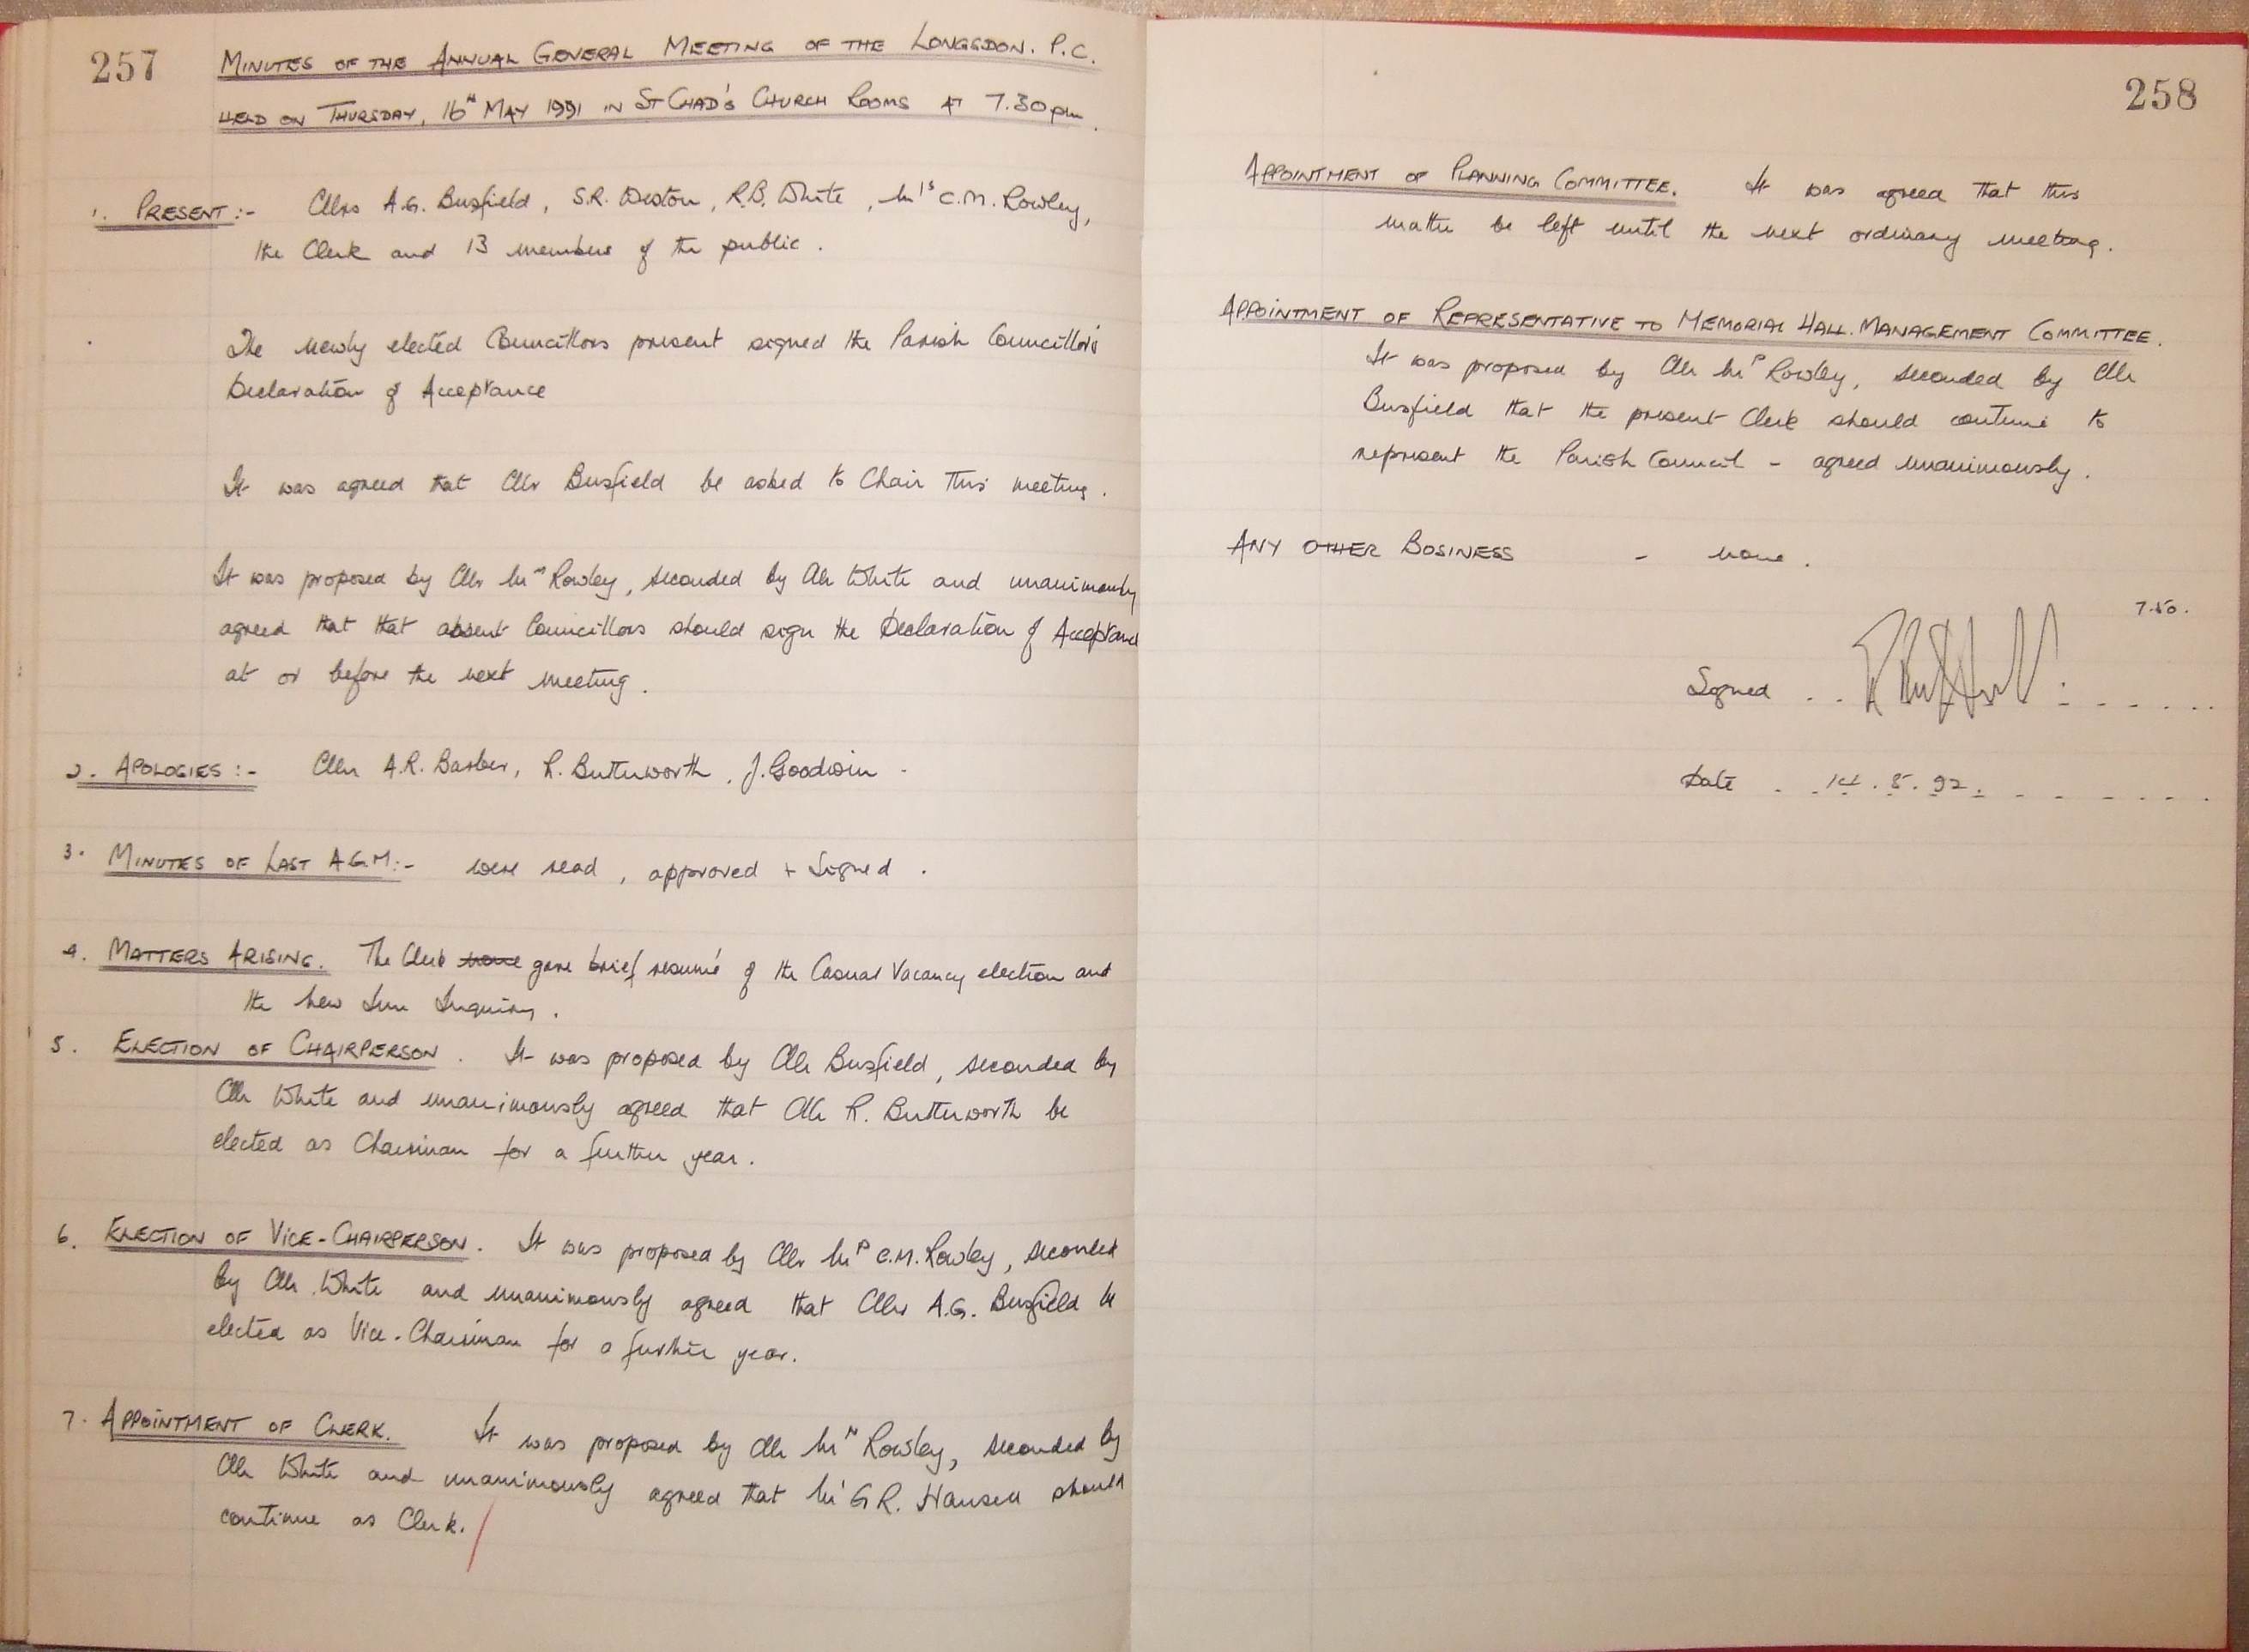 257
MINUTES OF THE ANNUAL GENERAL MEETING OF THE LONGSDON. P.C.
HELD ON THURSDAY, 16th MAY 1991 IN ST CHAD'S CHURCH ROOMS AT 7.30pm.
1. PRESENT:- Cllrs A.G. Busfield, S.R. Weston, R.B. White, Mrs C.M. Rowley,
the Clerk and 13 members of the public.
The newly elected Councillors present signed the Parish Councillors'
Declaration of Acceptance
It was agreed that Cllr Busfield be asked to Chair this meeting.
It was proposed by Cllr Mrs Rowley, seconded by Cllr White and unanimously
agreed that that absent Councillors should sign the Declaration of Acceptance
at or before the next meeting.
2. APOLOGIES:- Cllrs A.R. Barber, R. Butterworth, J. Goodwin.
3. MINUTES OF LAST A.G.M:- were read, approved + signed.
4. MATTERS ARISING. The Clerk gave brief resumé of the Casual Vacancy election and
the New Inn Inquiry.
5. ELECTION OF CHAIRPERSON. It was proposed by Cllr Busfield, seconded by
Cllr White and unanimously agreed that Cllr R. Butterworth be
elected as Chairman for a further year.
6. ELECTION OF VICE-CHAIRPERSON. It was proposed by Cllr Mrs C.M. Rowley, seconded
by Cllr White and unanimously agreed that Cllr A.G. Busfield be
elected as Vice-Chairman for a further year.
7. APPOINTMENT OF CLERK. It was proposed by Cllr Mrs Rowley, seconded by
Cllr White and unanimously agreed that Mr G R. Hansell should
continue as Clerk.
258
APPOINTMENT OF PLANNING COMMITTEE. It was agreed that this
matter be left until the next ordinary meeting.
APPOINTMENT OF REPRESENTATIVE TO MEMORIAL HALL MANAGEMENT COMMITTEE.
It was proposed by Cllr Mrs Rowley, seconded by Cllr
Busfield that the present Clerk should continue to
represent the Parish Council - agreed unanimously.
ANY OTHER BUSINESS - none.
7.50.
Signed
Date 14.5.92.